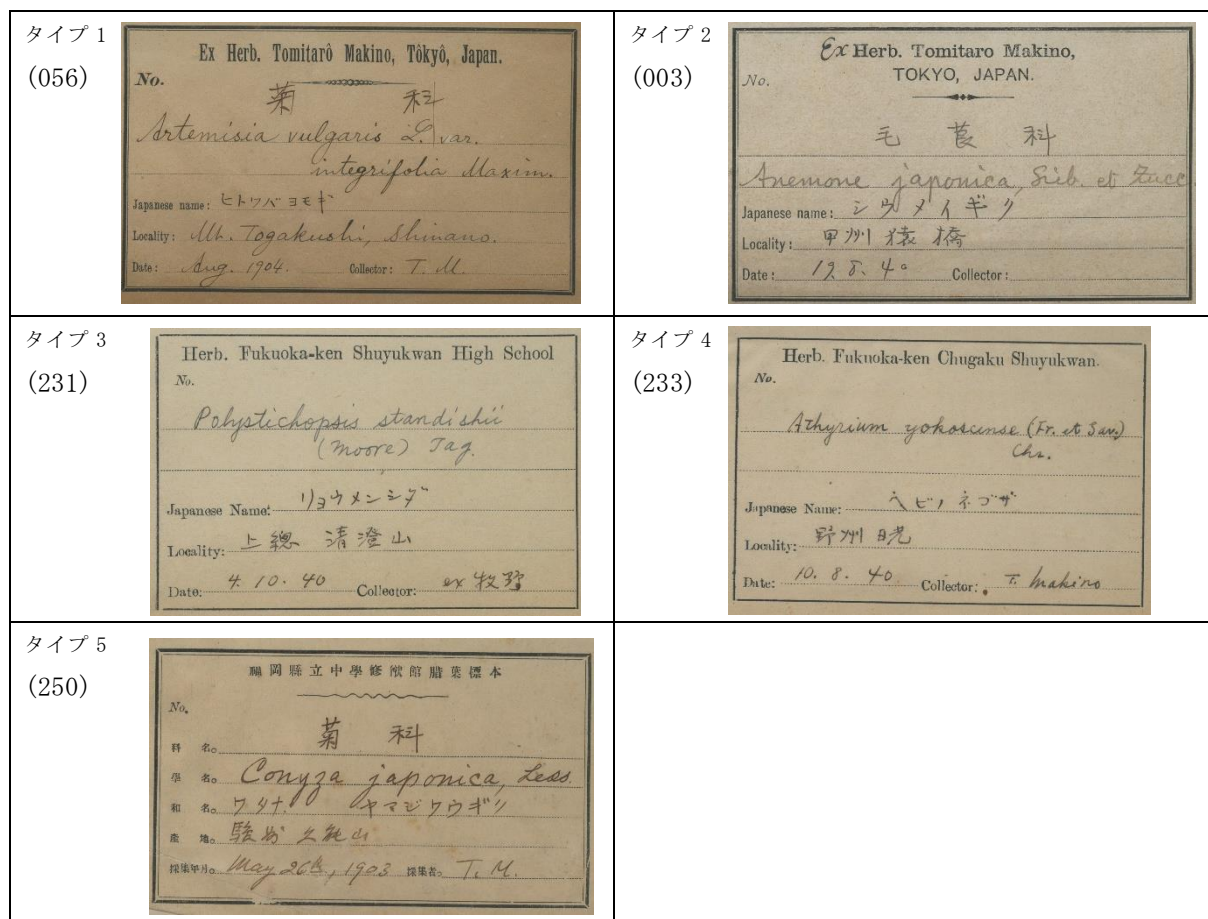 タイプ 1
(056)
Ex Herb. Tomitarô Makino, Tôkyô, Japan.
No.
菊 科
Artemisia vulgaris L. var.
integrifolia Maxim.
Japanese name: ヒトツバヨモギ
Locality: Mt. Togakushi, Shinano.
Date: Aug. 1904. Collector: T. M.
タイプ 2
(003)
Ex Herb. Tomitaro Makino,
TOKYO, JAPAN.
No.
毛 莨 科
Anemone japonica, Sieb. et Zucc.
Japanese name: シウメイギク
Locality: 甲州猿橋
Date: 19. 8. 40 Collector:
タイプ 3
(231)
Herb. Fukuoka-ken Shuyukwan High School
No.
Polystichopsis standishii
(Moore) Tag.
Japanese Name: リョウメンシダ
Locality: 上總 清澄山
Date: 4. 10. 40 Collector: ex 牧野
タイプ 4
(233)
Herb. Fukuoka-ken Chugaku Shuyukwan.
No.
Athyrium yokoscense (Fr. et Sav.)
Chr.
Japanese Name: ヘビノネゴザ
Locality: 野州日光
Date: 10. 8. 40 Collector: T. Makino
タイプ 5
(250)
福岡縣立中學修猷館腊葉標本
No.
科 名。 菊 科
學 名。 Conyza japonica, Less.
和 名。 ワタナ. ヤマヂワウギク
產 地。 駿州久能山
採集年月。 May 26th, 1903 採集者。 T. M.